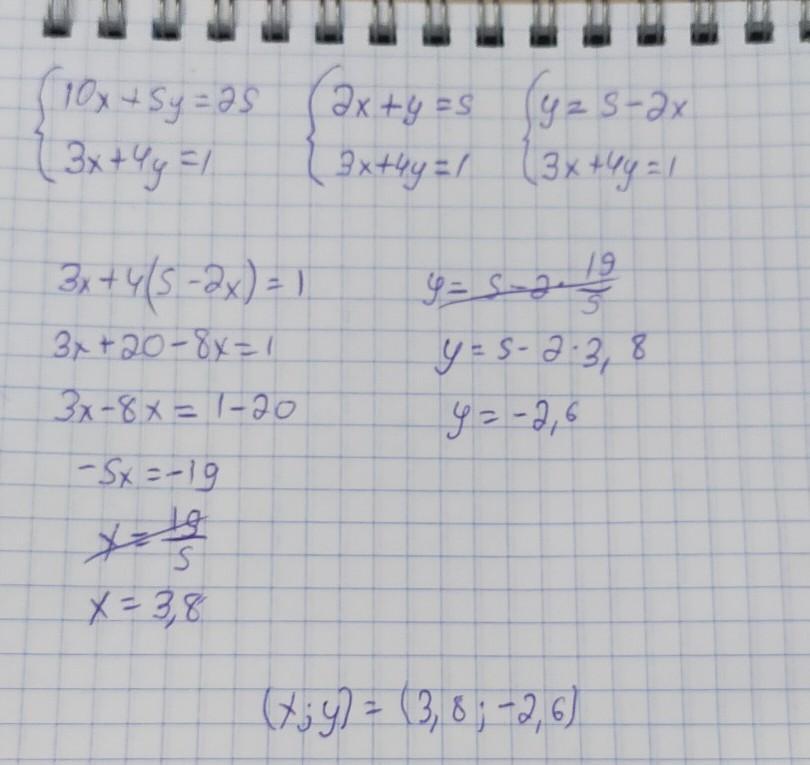 10x+5y=25 2x+y=5 y=5-2x
3x+4y=1 3x+4y=1 3x+4y=1
3x+4(5-2x)=1
3x+20-8x=1
3x-8x=1-20
-5x=-19
x=19/5
x=3,8
y=5-2·19/5
y=5-2·3,8
y=-2,6
(x;y)=(3,8;-2,6)